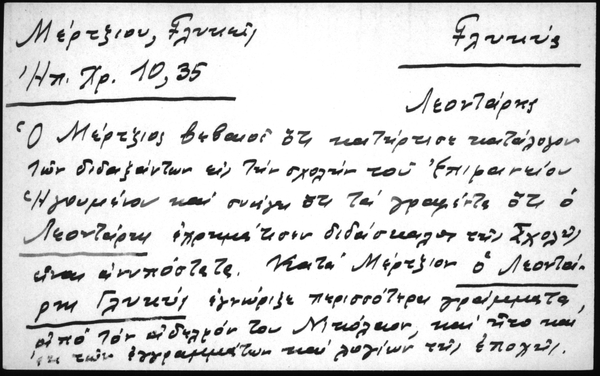 Μέρτζιου, Γλυκεῖς
Γλυκύς
Ἠπ. Χρ. 10, 35
Λεοντάρης
Ὁ Μέρτζιος βεβαιοῖ ὅτι κατήρτισε κατάλογον
τῶν διδαξάντων εἰς τὴν σχολὴν τοῦ Ἐπιφανείου
Ἡγουμένου καὶ συνάγει ὅτι τὰ γραφέντα ὅτι ὁ
Λεοντάρης ἐχρημάτισεν διδάσκαλος τῆς Σχολῆς
εἶναι ἀνυπόστατα. Κατὰ Μέρτζιον ὁ Λεοντά-
ρης Γλυκύς ἐγνώριζε περισσότερα γράμματα
ἀπὸ τὸν ἀδελφόν του Νικόλαον, καὶ ἦτο καὶ
ἐκ τῶν ἐγγραμμάτων καὶ λογίων τῆς ἐποχῆς.